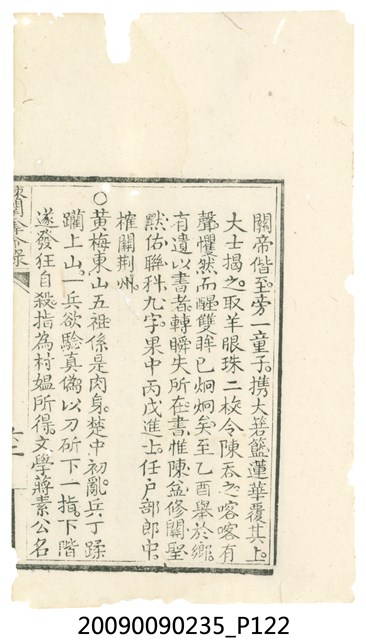 關帝偕至旁一童子携大箬籃蓮華覆其上
大士揭之取羊眼珠二枚令陳吞之喀喀有
聲懼然而醒雙眸已炯炯矣至乙酉舉於鄉
有遺以書者轉瞬失所在書惟陳益修關聖
默佑聯科九字果中丙戌進士任戶部郎中
榷關荆州
○黃梅東山五祖係是肉身楚中初亂兵丁蹂
躪上山一兵欲驗真偽以刀斫下一指下階
遂發狂自殺指為村媼所得文學蔣素公名
20090090235_P122